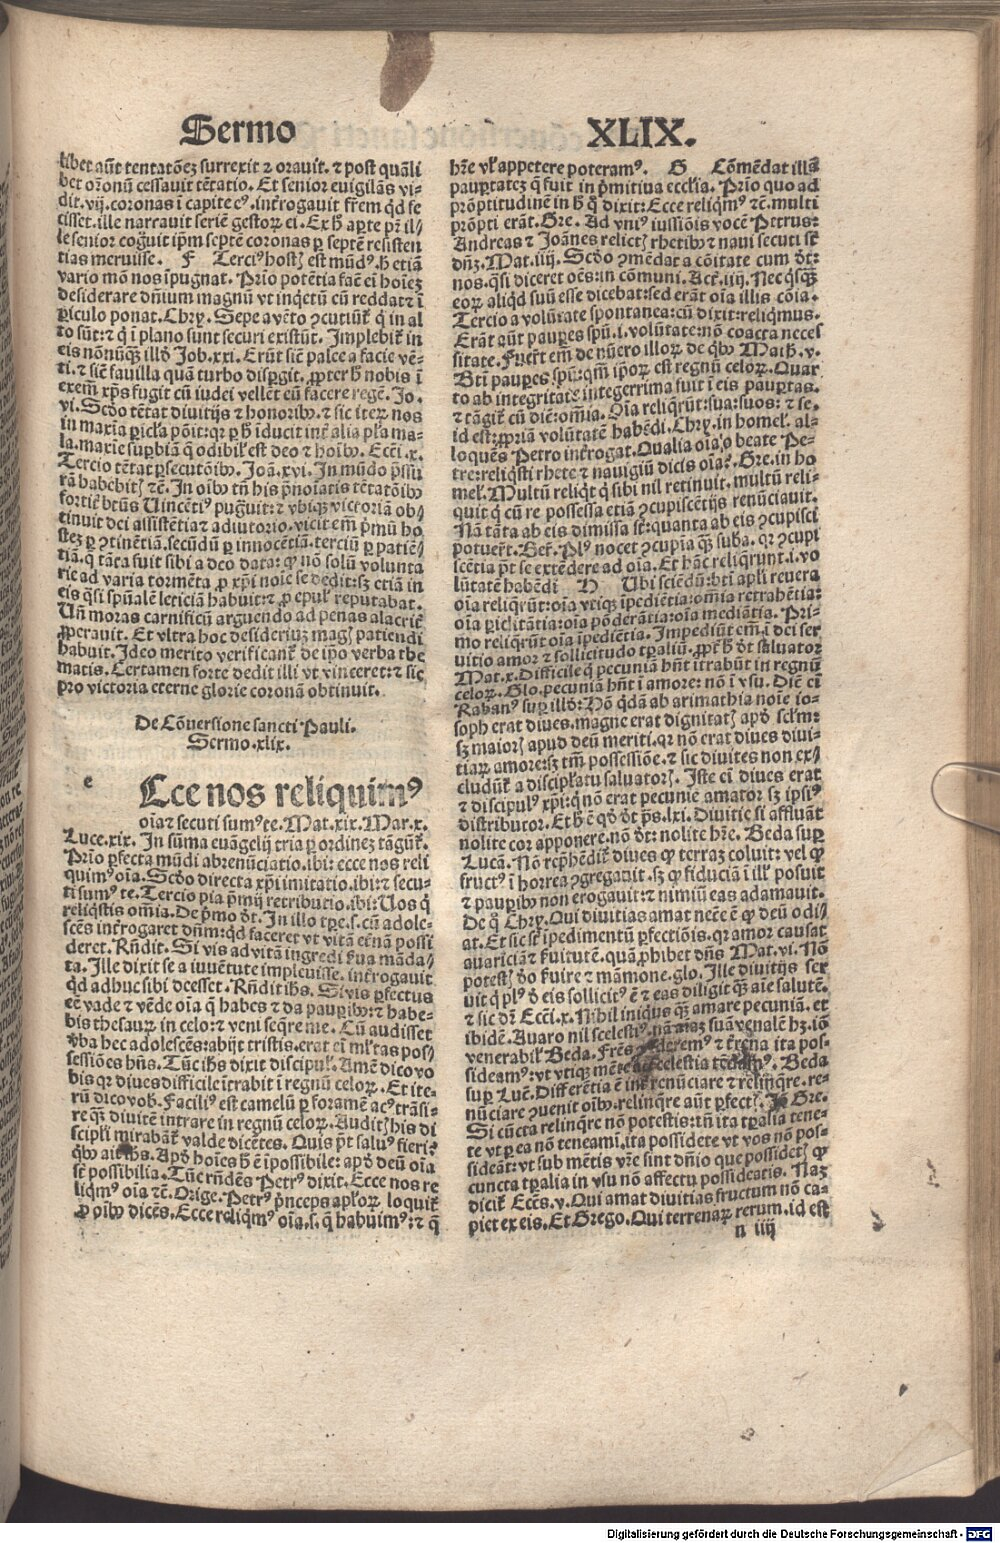 Sermo XLIX.
libet aūt tentatōeʒ surrexit ⁊ orauit. ⁊ post quāli
bet orōnū cessauit tētatio. Et senior euigilās vi-
dit. vij. coronas ī capite eꝰ. int̄rogauit fr̄em qd fe
cisset. ille narrauit seriē gestoꝝ ei. Ex h̄ aꝑte pꝫ il/
le senior coḡuit ip̄m septē coronas ꝑ septē resisten
tias meruisse. F Terciꝰ hostꝭ est mūdꝰ. h̄ etiā
vario mō nos īpugnat. Prīo potētia fac̄ ei hoīeʒ
desiderare dn̄ium magnū vt inq̄etū cū reddat ⁊ ī
ꝑiculo ponat. Chrꝭ. Sepe a vēto ꝯcutiūt̄ q̇ in al
to sūt: ⁊ q̇ ī plano sunt securi existūt. Implebit̄ in
eis nōnūqꝫ illō Job. xxi. Erūt sic̄ palee a facie vē-
ti. ⁊ sic̄ fauilla quā turbo disꝑgit. ꝓpter h̄ nobis ī
exem̄ xp̄s fugit cū iudei vellēt eū facere regē. Jo.
vi. Scd̄o tētat diuitijs ⁊ honoribꝫ. ⁊ sic iteꝝ nos
in maxīa ꝑicl̄a pōit: qꝛ ꝑ h̄ īducit int̄ alia pl̄a ma-
la. maxīe suꝑbiā q̄ odibil̄ est deo ⁊ hoībꝫ. Ecci. x.
Tercio tētat ꝑsecutōibꝫ. Joā. xvi. In mūdo p̄ssu
rā habebitꝭ ⁊c̄. In oībꝫ tn̄ his p̄noīatis tētatōibꝫ
fortit̄ btūs Uincētiꝰ puḡuit: ⁊ vbiqꝫ victoriā ob/
tinuit dei assistētia ⁊ adiutorio. vicit em̄ p̄mū ho
steʒ ꝑ ꝯtinētiā. secūdū ꝑ innocētiā. terciū ꝑ patiē/
tiā. q̄ tāta fuit sibi a deo data: ꝙ nō solū volunta
rie ad varia tormēta ꝓ xp̄i noīe se dedit: sꝫ etiā in
eis q̄si spūalē leticiā habuit: ⁊ ꝓ epul̄ reputabat.
Un̄ moras carnificū arguendo ad penas alacrit̄
ꝓperauit. Et vltra hoc desideriuʒ magꝭ patiendi
habuit. Ideo merito verificant̄ de ip̄o verba the
matis. Certamen forte dedit illi vt vinceret: ⁊ sic
pro victoria eterne glorie coronā obtinuit.
De Cōuersione sancti Pauli.
Sermo. xlix.
e Ecce nos reliquimꝰ
oīa ⁊ secuti sumꝰ te. Mat. xix. Mar. x.
Luce. xix. In sūma euāgelij tria ꝑ ordineʒ tāgūt̄.
Prīo ꝑfecta mūdi abrenūciatio. ibi: ecce nos reli
quimꝰ oīa. Scd̄o directa xp̄i imitatio. ibi: ⁊ secu-
ti sumꝰ te. Tercio pia p̄mij retributio. ibi: Uos q̇
reliq̇stis om̄ia. De p̄mo d̄t. In illo tp̄e. s. cū adole-
scēs int̄rogaret dn̄m: qd faceret vt vitā et̄nā possi
deret. Rn̄dit. Si vis ad vitā ingredi ẜua māda/
ta. Ille dixit se a iuuētute impleuisse. int̄rogauit
qd adhuc sibi deesset. Rn̄dit ihs. Si vis ꝑfectus
eē vade ⁊ vēde oīa q̄ habes ⁊ da pauꝑibꝫ: ⁊ habe-
bis thesauꝝ in celo: ⁊ veni seq̄re me. Cū audisset
ꝟba hec adolescēs: abijt tristis. erat em̄ ml̄tas pos/
sessiōes hn̄s. Tūc ihs dixit discipul̄. Amē dico vo
bis qꝛ diues difficile ītrabit ī regnū celoꝝ. Et ite-
rū dico vob̄. Faciliꝰ est camelū ꝑ foramē acꝰ trāsi-
re qꝫ diuitē intrare in regnū celoꝝ. Auditꝭ his di
scipl̄i mirabāt̄ valde dicētes. Quis p̄t saluꝰ fieri?
q̇bꝫ ait ihs. Apd̄ hoīes h̄ ē īpossibile: apd̄ deū oīa
st̄ possibilia. Tūc rn̄dēs Petrꝰ dixit. Ecce nos re
liqmꝰ oīa ⁊c̄. Orige. Petrꝰ p̄nceps apl̄oꝝ loquit̄
ꝓ oībꝫ dicēs. Ecce reliqmꝰ oīa. s. q̄ habuimꝰ: ⁊ q̄
hr̄e vl̄ appetere poteramꝰ. G Cōmēdat illā
pauꝑtateʒ q̄ fuit in p̄mitiua eccl̄ia. Prīo quo ad
prōptitudinē in h̄ q̇ dixit: Ecce reliqmꝰ ⁊c̄. multi
prōpti erāt. Gre. Ad vniꝰ iussiōis vocē Petrus:
Andreas ⁊ Joānes relictꝭ rhetibꝫ ⁊ naui secuti st̄
dn̄ʒ. Mat. iiij. Scd̄o ꝯmēdat a cōitate cum d̄t:
nos. q̄si diceret oēs: in cōmuni. Act. iiij. Nec q̇sqꝫ
eoꝝ aliqd suū esse dicebat: sed erāt oīa illis cōia.
Tercio a volūtate spontanea: cū dixit: reliqmus.
Erāt aūt pauꝑes spū. i. volūtate: nō coacta neces
sitate. Fuer̄t em̄ de nūero illoꝝ de q̇bꝫ Math. v.
Bti pauꝑes spū: qm̄ ip̄oꝝ est regnū celoꝝ. Quar
to ab integritate: integerrima fuit ī eis pauꝑtas.
⁊ tāgit̄ cū dic̄: om̄ia. Oīa reliq̄rūt: sua: suos: ⁊ se.
id est: ꝓpriā volūtatē habēdi. Chrꝭ. in homel. al-
loquēs Petro int̄rogat. Qualia oīa o beate Pe-
tre: reliq̇sti rhete ⁊ nauigiū dicis oīa? Gre. in ho
mel̄. Multū reliq̇t q̇ sibi nil retinuit. multū reli-
quit q̇ cū re possessa etiā ꝯcupiscētijs renūciauit.
Nā tāta ab eis dimissa st̄: quanta ab eis ꝯcupisci
potuer̄t. Ber̄. Plꝰ nocet ꝯcupīa qꝫ suba. qꝛ ꝯcupi
scētia p̄t se extēdere ad oīa. Et hāc reliq̄runt. i. vo
lūtatē habēdi H Ubi sciēdū: bti apl̄i reuera
oīa reliq̄rūt: oīa vtiqꝫ īpediētia: om̄ia retrabētia:
oīa ꝑiclitātia: oīa pōderātia: oīa mediātia. Pri-
mo reliq̄rūt oīa īpediētia. Impediūt em̄ ī dei ser
uitio amor ⁊ sollicitudo tꝑaliū. ꝓpt̄ h̄ d̄t saluator
Mat. x. Difficile q̇ pecuniā hn̄t ītrabūt in regnū
celoꝝ. Glo. pecuniā hn̄t ī amore: nō ī vsu. Dic̄ em̄
Rabanꝰ suꝑ illō: Hō q̇dā ab arimathia noīe io-
soph erat diues. magne erat dignitatꝭ apd̄ scl̄m:
sꝫ maiorꝭ apud deū meriti. qꝛ nō erat diues diui-
tiaꝝ amore: sꝫ tm̄ possessiōe. ⁊ sic diuites non ex/
cludunt̄ a discipl̄atu saluatorꝭ. Iste em̄ diues erat
⁊ discipulꝰ xp̄i: q̇ nō erat pecunie amator sꝫ ipsiꝰ
distributor. Et h̄ ē qd d̄t p̄s. lxi. Diuitie si affluāt
nolite cor apponere. nō d̄t: nolite hr̄e. Beda suꝑ
Lucā. Nō rep̄hēdit̄ diues ꝙ terraʒ coluit: vel ꝙ
fructꝰ ī horrea ꝯgregauit. sꝫ ꝙ fiduciā ī ill̄ posuit
⁊ pauꝑibꝫ non erogauit: ⁊ nimiū eas adamauit.
De q̇ Chrꝭ. Qui diuitias amat necē ē ꝙ deū odi/
at. Et sic st̄ īpedimentū ꝑfectiōis. qꝛ amor causat
auariciā ⁊ ẜuitutē. quā ꝓhibet dn̄s Mat. vi. Nō
potestꝭ d̄o ẜuire ⁊ māmone. glo. Ille diuitijs ser
uit q̇ plꝰ d̄ eis sollicitꝰ ē ⁊ eas diligit qꝫ aīe salutē.
⁊ sic dr̄ Ecci. x. Nihil iniqꝰ qꝫ amare pecuniā. et
ibidē. Auaro nil scelestiꝰ. nā ⁊ aīaʒ suā venalē hꝫ. iō
venerabil̄ Beda. Fr̄es ederemꝰ ⁊ tr̄ena ita pos-
sideamꝰ: vt vtiqꝫ mēte celestia tēdamꝰ. Beda
suꝑ Luc̄. Differētia ē int̄ renūciare ⁊ relinq̄re. re-
nūciare ꝯuenit oībꝫ. relinq̄re aūt ꝑfectꝭ. Jō Gre.
Si cūcta relinq̄re nō potestis: tn̄ ita tꝑalia tene-
te vt ꝑ ea nō teneamī. ita possidete vt vos nō pos-
sideāt: vt sub mētis vr̄e sint dn̄io que possidetꝭ ꝙ
cuncta tꝑalia in vsu nō affectu possideatis. Naʒ
dicit̄ Eccs. v. Qui amat diuitias fructum nō ca-
piet ex eis. Et Grego. Qui terrenaꝝ rerum. id est
n iiij
Digitalisierung gefördert durch die Deutsche Forschungsgemeinschaft - DFG